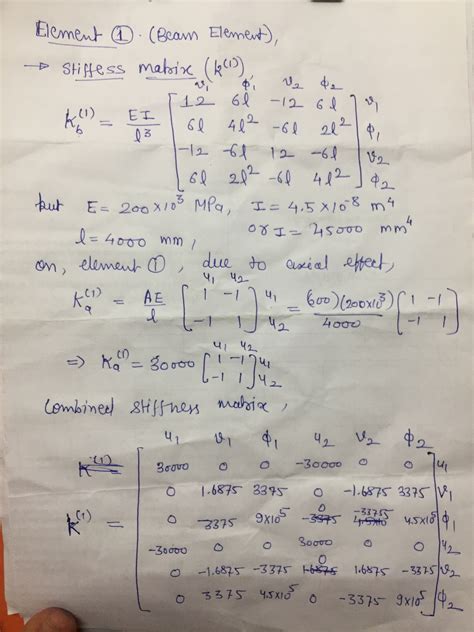 Element ①. (Beam Element),
→ stiffess matrix (k⁽¹⁾)
v₁ ϕ₁ v₂ ϕ₂
K_b⁽¹⁾ = EI/l³ [ 12 6l -12 6l ] v₁
6l 4l² -6l 2l² ϕ₁
-12 -6l 12 -6l v₂
6l 2l² -6l 4l² ϕ₂
but E = 200×10³ MPa, I = 4.5×10⁻⁸ m⁴
l = 4000 mm, or I = 45000 mm⁴
on, element ①, due to axial effect,
u₁ u₂
K_a⁽¹⁾ = AE/l [ 1 -1 ] u₁ = (600)(200×10³)/4000 [ 1 -1 ]
-1 1 u₂ -1 1
u₁ u₂
⇒ K_a⁽¹⁾ = 30000 [ 1 -1 ] u₁
-1 1 u₂
Combined stiffness matrix,
u₁ v₁ ϕ₁ u₂ v₂ ϕ₂
30000 0 0 -30000 0 0 u₁
0 1.6875 3375 0 -1.6875 3375 v₁
K⁽¹⁾ = 0 3375 9×10⁵ -3375 4.5×10⁵ ϕ₁
-30000 0 0 30000 0 0 u₂
0 -1.6875 -3375 0 1.6875 -3375 v₂
0 3375 4.5×10⁵ 0 -3375 9×10⁵ ϕ₂